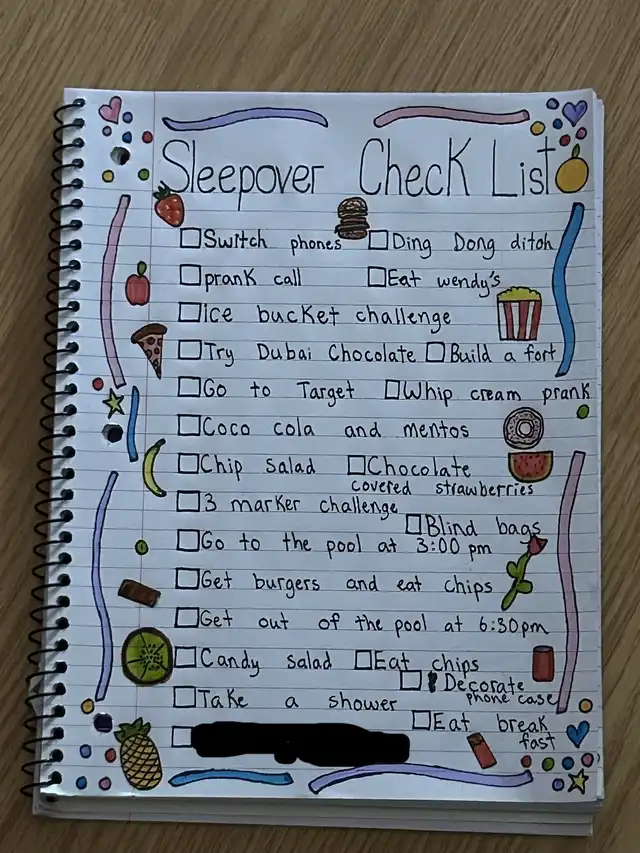 Sleepover Check List
Switch phones Ding Dong ditch
prank call Eat wendy's
ice bucket challenge
Try Dubai Chocolate Build a fort
Go to Target Whip cream prank
Coco cola and mentos
Chip salad Chocolate
covered strawberries
3 marker challenge
Blind bags
Go to the pool at 3:00 pm
Get burgers and eat chips
Get out of the pool at 6:30pm
Candy salad Eat chips
Decorate
phone case
Take a shower
Eat break
fast